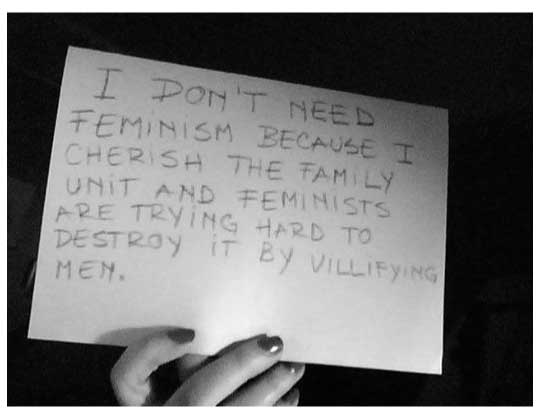 I DON'T NEED
FEMINISM BECAUSE I
CHERISH THE FAMILY
UNIT AND FEMINISTS
ARE TRYING HARD TO
DESTROY IT BY VILLIFYING
MEN.